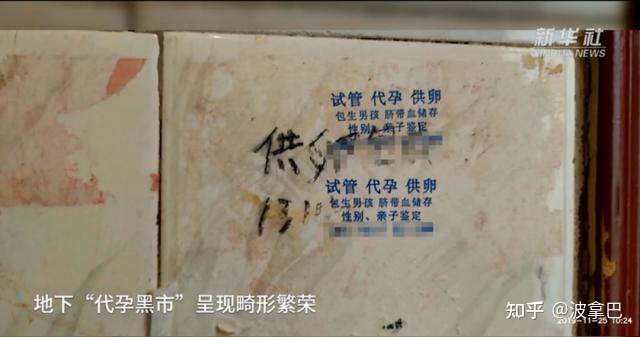 新华社
XINHUA NEWS
试管 代孕 供卵
包生男孩 脐带血储存
性别、亲子鉴定
供卵
131
试管 代孕 供卵
包生男孩 脐带血储存
性别、亲子鉴定
地下“代孕黑市”呈现畸形繁荣
知乎 @波拿巴
2019-11-25 10:24